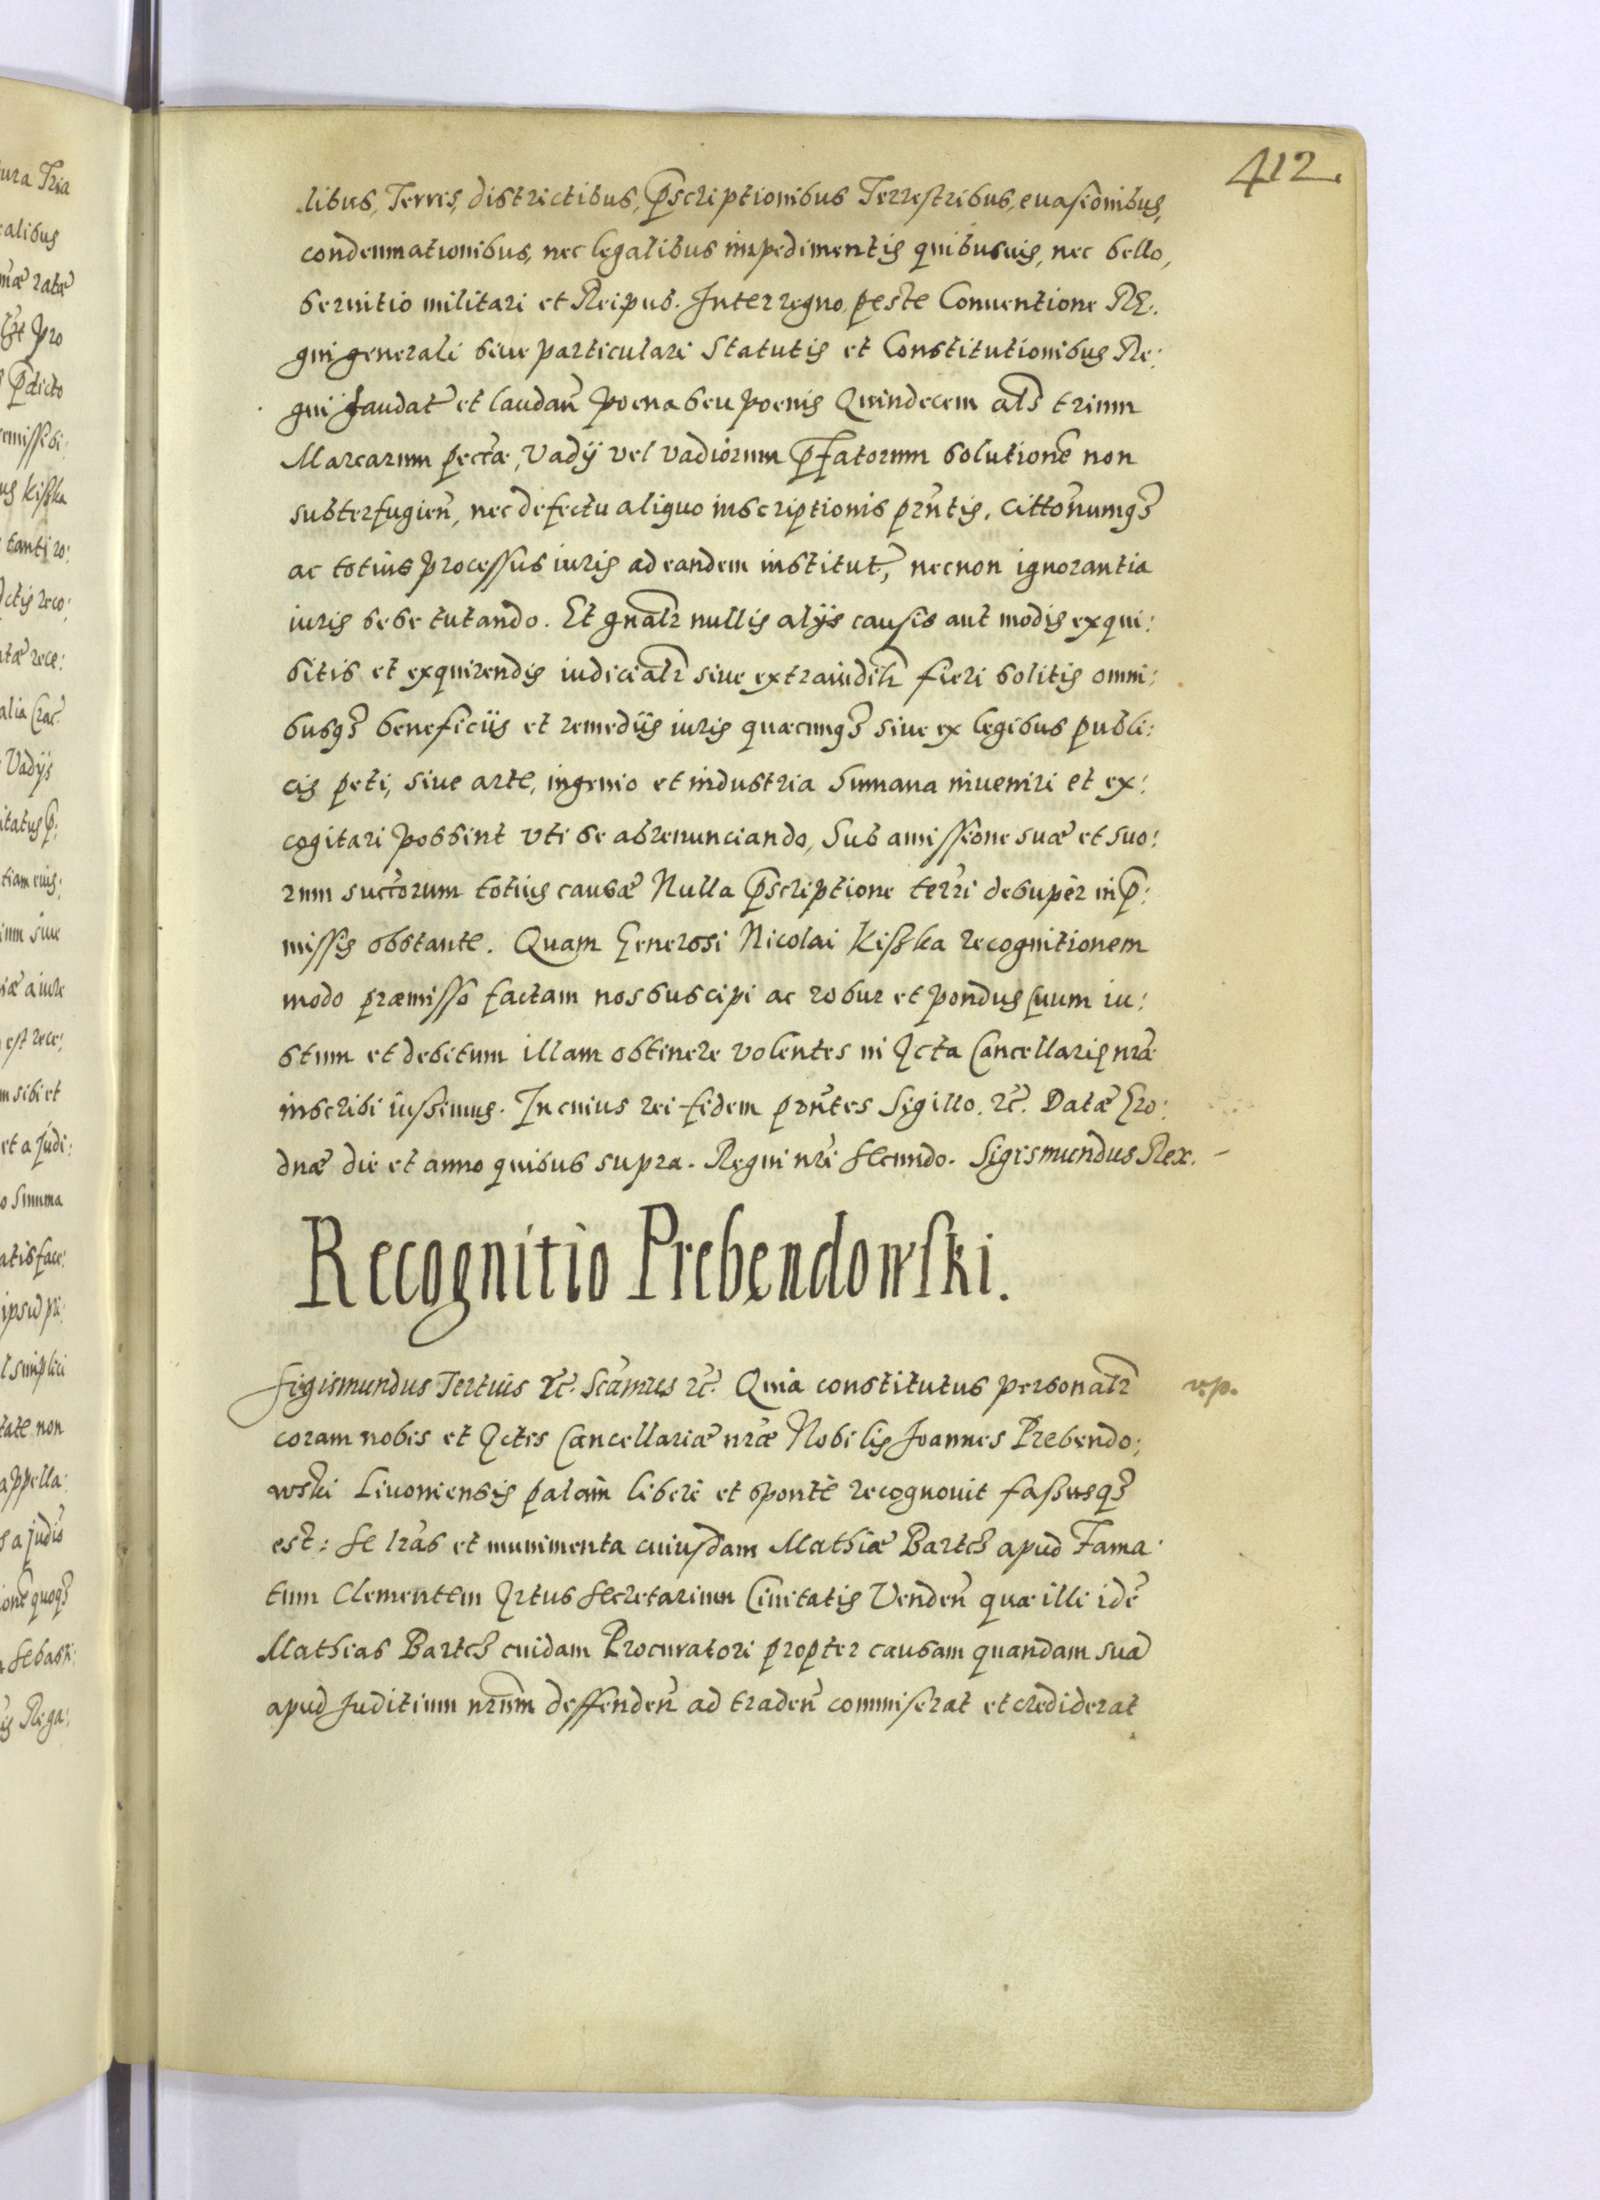 412.
libus, Terris, districtibus, p̃scriptionibus Terrestribus, euasionibus,
condemnationibus, nec legalibus impedimentis quibusuis, nec bello,
seruitio militari et Reipub. Interregno, peste Conuentione Re:
gni generali siue particulari Statutis et Constitutionibus Re:
gni laudat̃ et laudañ poena seu poenis Quindecem als̃ trium
Marcarum pectæ, Vadÿ vel vadiorum p̃fatorum solutionẽ non
subterfugieñ, nec defectu aliquo inscriptionis pr̃ntis, citto̅numq̃
ac totius processus iuris ad eandem institut̃, necnon ignorantia
iuris sese tutando. Et gnalr̃ nullis alÿs causis aut modis exqui:
sitis et exquirendis iudicialr̃ siue extraiudilr̃ fieri solitis omni:
busq̃ beneficÿs et remedÿs iuris quæcunq̃ siue ex legibus publi:
cis peti, siue arte, ingenio et industria humana inueniri et ex:
cogitari possint vti se abrenunciando, Sub amissione suæ et suo:
rum succ̃orum totius causæ Nulla p̃scriptione terr̃i desuper in p̃:
missis obstante. Quam Generosi Nicolai Kiszka recognitionem
modo præmisso factam nos suscipi ac robur et pondus suum iu:
stum et debitum illam obtinere volentes in Acta Cancellariæ nr̃æ
inscribi iussimus. In cuius rei fidem pr̃ntes Sigillo. rc̃. Datæ Gro:
dnæ die et anno quibus supra. Regni nr̃i Secundo. Sigismundus Rex. -
Recognitio Prebendowski.
Sigismundus Tertius rc̃. Sc̃amus rc̃. Quia constitutus personalr̃
v.p.
coram nobis et Actis Cancellariæ nr̃æ Nobilis Joannes Prebendo:
wski Liuoniensis palam liberè et spontè recognouit fassusq̃
est: Se lr̃as et munimenta cuiusdam Mathiæ Bartch apud Fama:
tum Clementem Artus Secretarium Ciuitatis Vendeñ quæ illi idẽ
Mathias Bartch cuidam Procuratori propter causam quandam suã
apud Juditium nr̃um deffendeñ ad tradeñ commiserat et crediderat